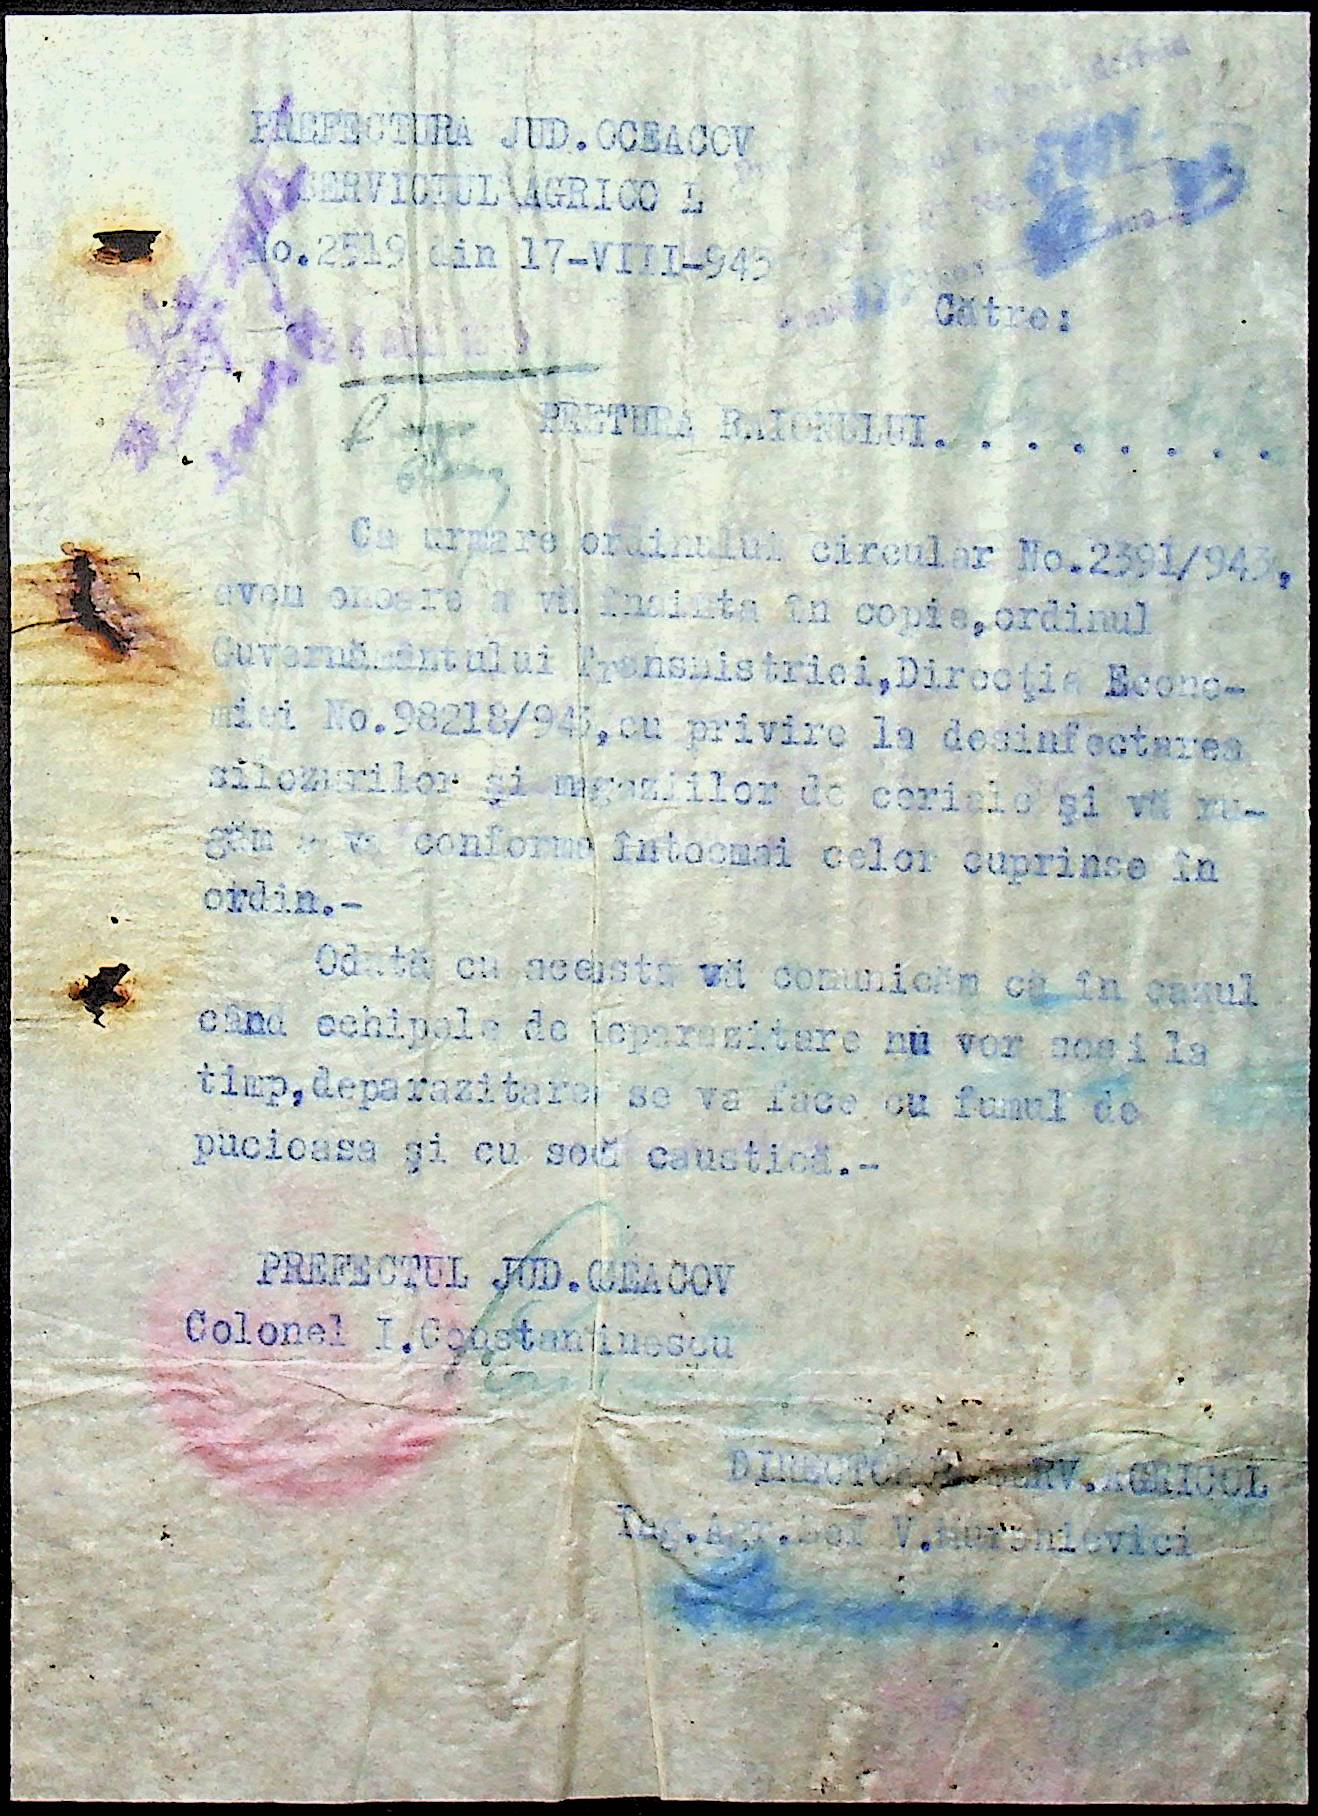 PREFECTURA JUD.OCEACOV
SERVICIUL AGRICO L
No.2519 din 17-VIII-943
Către:
PRETURA RAIONULUI. . . . . . . . .
Ca urmare ordinului circular No.2391/943,
avem onoare a vă înainta în copie,ordinul
Guvernământului Transnistriei,Direcţia Econo-
miei No.98218/943,cu privire la desinfectarea
silozurilor şi magaziilor de ceriale şi vă ru-
găm a vă conforma întocmai celor cuprinse în
ordin.-
Odată cu aceasta vă comunicăm că în cazul
când echipele de deparazitare nu vor sosi la
timp,deparazitarea se va face cu fumul de
pucioasa şi cu sodă caustică.-
PREFECTUL JUD.OCEACOV
Colonel I.Constantinescu
DIRECTORUL SERV.AGRICOL
Ing.Agr. V.